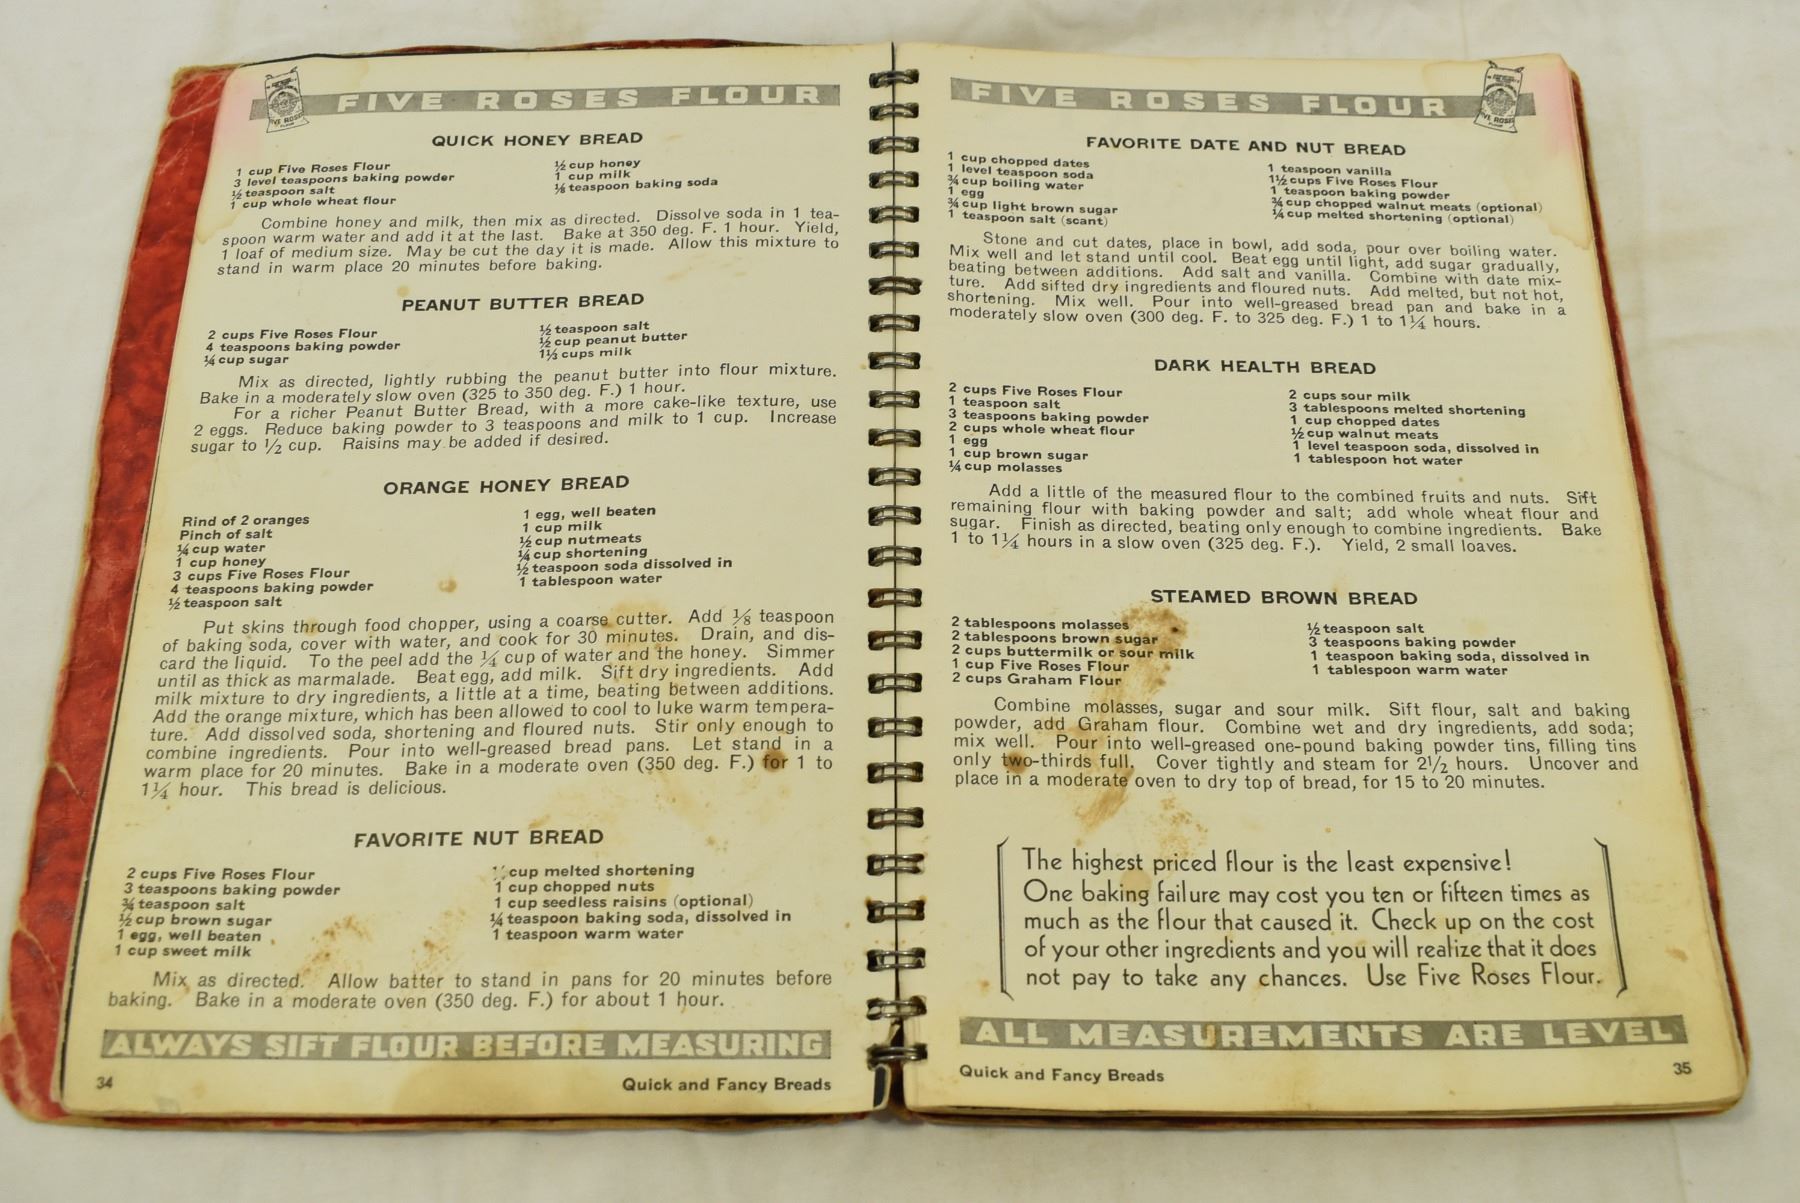 FIVE ROSES FLOUR
QUICK HONEY BREAD
1 cup Five Roses Flour
3 level teaspoons baking powder
½ teaspoon salt
1 cup whole wheat flour
½ cup honey
1 cup milk
⅛ teaspoon baking soda
Combine honey and milk, then mix as directed. Dissolve soda in 1 tea-
spoon warm water and add it at the last. Bake at 350 deg. F. 1 hour. Yield,
1 loaf of medium size. May be cut the day it is made. Allow this mixture to
stand in warm place 20 minutes before baking.
PEANUT BUTTER BREAD
2 cups Five Roses Flour
4 teaspoons baking powder
¼ cup sugar
½ teaspoon salt
½ cup peanut butter
1⅓ cups milk
Mix as directed, lightly rubbing the peanut butter into flour mixture.
Bake in a moderately slow oven (325 to 350 deg. F.) 1 hour.
For a richer Peanut Butter Bread, with a more cake-like texture, use
2 eggs. Reduce baking powder to 3 teaspoons and milk to 1 cup. Increase
sugar to ½ cup. Raisins may be added if desired.
ORANGE HONEY BREAD
Rind of 2 oranges
Pinch of salt
¼ cup water
1 cup honey
3 cups Five Roses Flour
4 teaspoons baking powder
½ teaspoon salt
1 egg, well beaten
1 cup milk
½ cup nutmeats
¼ cup shortening
½ teaspoon soda dissolved in
1 tablespoon water
Put skins through food chopper, using a coarse cutter. Add ⅛ teaspoon
of baking soda, cover with water, and cook for 30 minutes. Drain, and dis-
card the liquid. To the peel add the ¼ cup of water and the honey. Simmer
until as thick as marmalade. Beat egg, add milk. Sift dry ingredients. Add
milk mixture to dry ingredients, a little at a time, beating between additions.
Add the orange mixture, which has been allowed to cool to luke warm tempera-
ture. Add dissolved soda, shortening and floured nuts. Stir only enough to
combine ingredients. Pour into well-greased bread pans. Let stand in a
warm place for 20 minutes. Bake in a moderate oven (350 deg. F.) for 1 to
1¼ hour. This bread is delicious.
FAVORITE NUT BREAD
2 cups Five Roses Flour
3 teaspoons baking powder
¾ teaspoon salt
½ cup brown sugar
1 egg, well beaten
1 cup sweet milk
cup melted shortening
1 cup chopped nuts
1 cup seedless raisins (optional)
¼ teaspoon baking soda, dissolved in
1 teaspoon warm water
Mix as directed. Allow batter to stand in pans for 20 minutes before
baking. Bake in a moderate oven (350 deg. F.) for about 1 hour.
ALWAYS SIFT FLOUR BEFORE MEASURING
34
Quick and Fancy Breads
FIVE ROSES FLOUR
FAVORITE DATE AND NUT BREAD
1 cup chopped dates
1 level teaspoon soda
¾ cup boiling water
1 egg
¾ cup light brown sugar
1 teaspoon salt (scant)
1 teaspoon vanilla
1½ cups Five Roses Flour
1 teaspoon baking powder
¾ cup chopped walnut meats (optional)
¼ cup melted shortening (optional)
Stone and cut dates, place in bowl, add soda, pour over boiling water.
Mix well and let stand until cool. Beat egg until light, add sugar gradually,
beating between additions. Add salt and vanilla. Combine with date mix-
ture. Add sifted dry ingredients and floured nuts. Add melted, but not hot,
shortening. Mix well. Pour into well-greased bread pan and bake in a
moderately slow oven (300 deg. F. to 325 deg. F.) 1 to 1¼ hours.
DARK HEALTH BREAD
2 cups Five Roses Flour
1 teaspoon salt
3 teaspoons baking powder
2 cups whole wheat flour
1 egg
1 cup brown sugar
¼ cup molasses
2 cups sour milk
3 tablespoons melted shortening
1 cup chopped dates
½ cup walnut meats
1 level teaspoon soda, dissolved in
1 tablespoon hot water
Add a little of the measured flour to the combined fruits and nuts. Sift
remaining flour with baking powder and salt; add whole wheat flour and
sugar. Finish as directed, beating only enough to combine ingredients. Bake
1 to 1¼ hours in a slow oven (325 deg. F.). Yield, 2 small loaves.
STEAMED BROWN BREAD
2 tablespoons molasses
2 tablespoons brown sugar
2 cups buttermilk or sour milk
1 cup Five Roses Flour
2 cups Graham Flour
½ teaspoon salt
3 teaspoons baking powder
1 teaspoon baking soda, dissolved in
1 tablespoon warm water
Combine molasses, sugar and sour milk. Sift flour, salt and baking
powder, add Graham flour. Combine wet and dry ingredients, add soda;
mix well. Pour into well-greased one-pound baking powder tins, filling tins
only two-thirds full. Cover tightly and steam for 2½ hours. Uncover and
place in a moderate oven to dry top of bread, for 15 to 20 minutes.
The highest priced flour is the least expensive!
One baking failure may cost you ten or fifteen times as
much as the flour that caused it. Check up on the cost
of your other ingredients and you will realize that it does
not pay to take any chances. Use Five Roses Flour.
ALL MEASUREMENTS ARE LEVEL
Quick and Fancy Breads
35